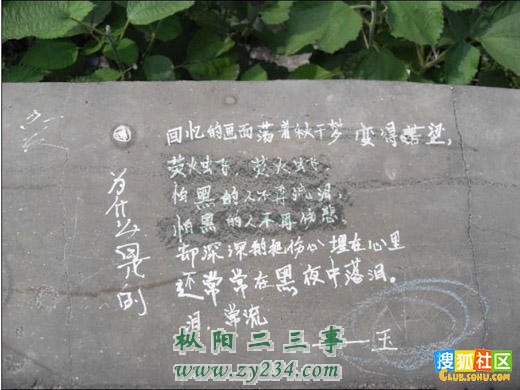 回忆的画面荡着秋千梦 变得
为什么 的
荧火虫飞 荧火虫飞
怕黑的人不再流泪,
怕黑的人不再伤悲
却深深的把伤心埋在心里
还常常在黑夜中落泪。
泪,常流
——玉
枞阳二三事
www.zy234.com
搜狐社区
CLUB.SOHU.COM